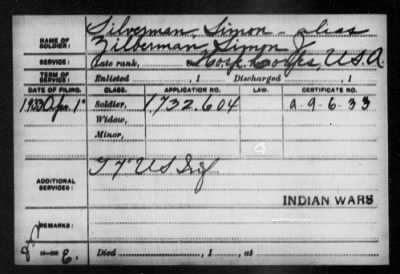 NAME OF SOLDIER: Silverman, Simon - alias
Zilberman, Simon J
SERVICE: Late rank, Hosp. Corps, U.S.A.
TERM OF SERVICE: Enlisted , 1 Discharged , 1
DATE OF FILING. CLASS. APPLICATION NO. LAW. CERTIFICATE NO.
1933 Apr. 1 Soldier, 1,732,604 a-9-6-33
Widow,
Minor,
ADDITIONAL SERVICES: US Inf
INDIAN WARS
REMARKS:
Died , 1 , at